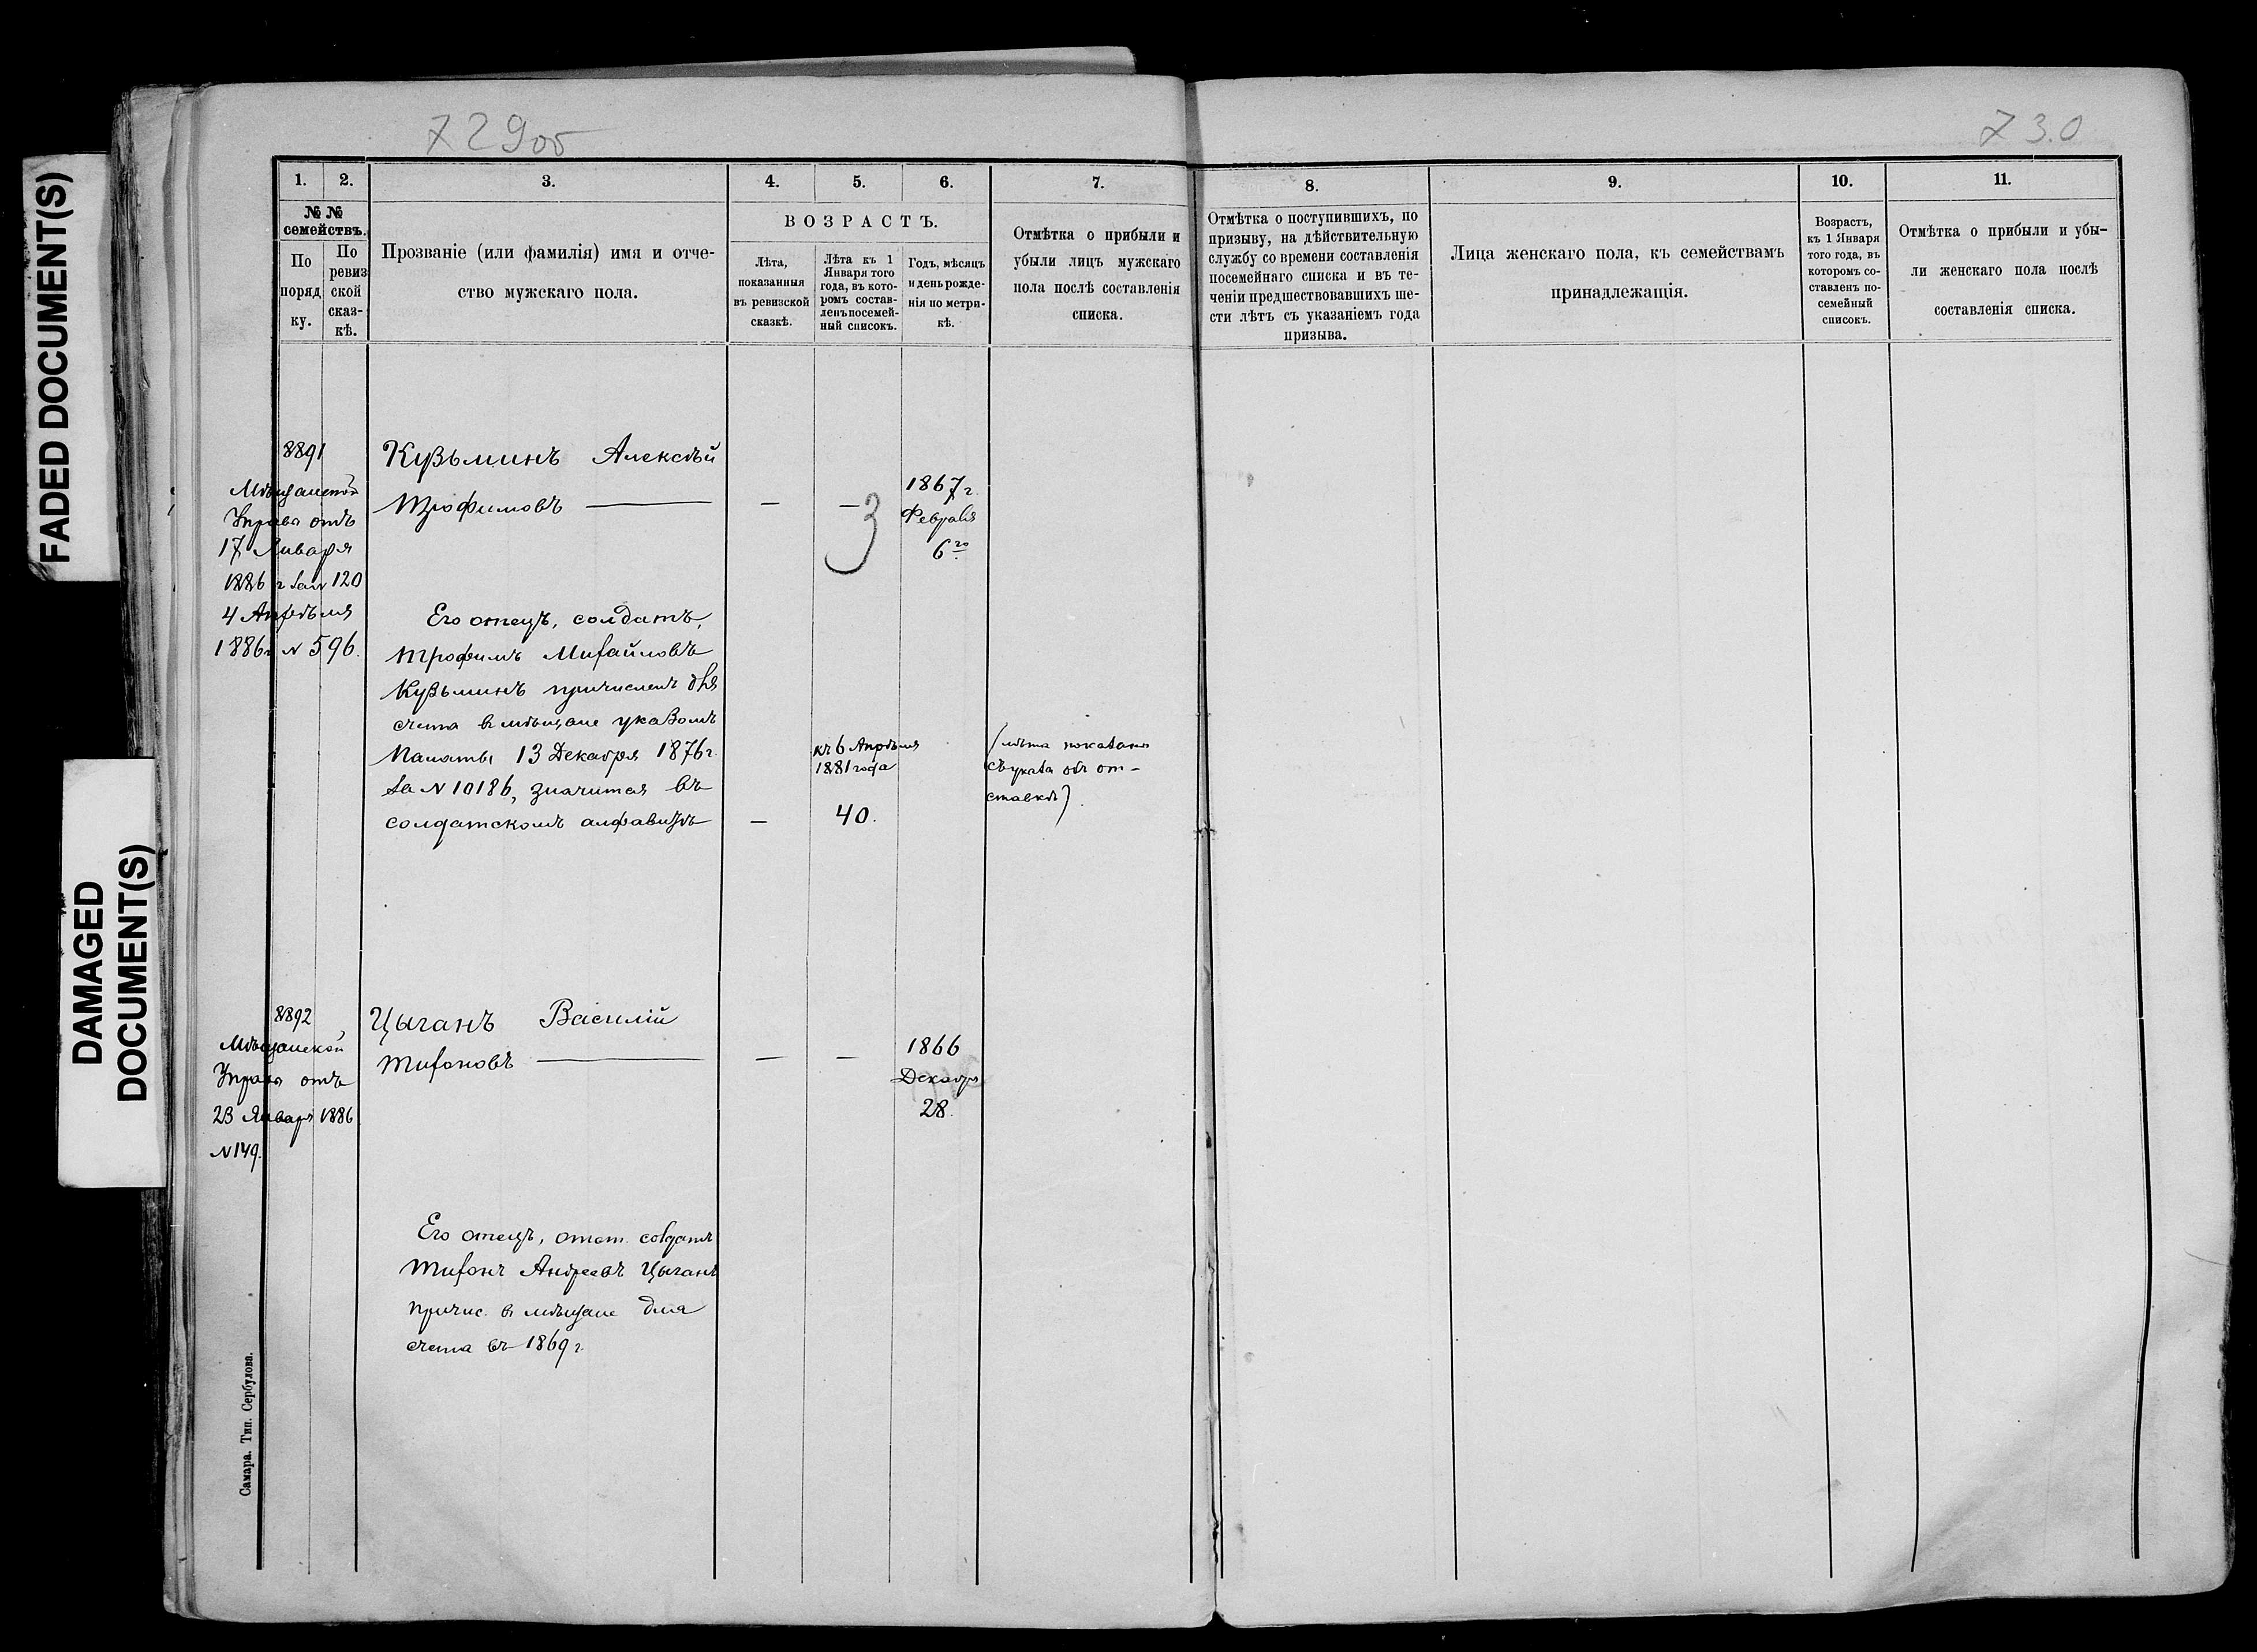 FADED DOCUMENT(S)
DAMAGED
DOCUMENT(S)
729об
730
1.
2.
3.
4.
5.
6.
7.
8.
9.
10.
11.
№ №
семействъ.
По
поряд
ку.
По
ревиз
ской
сказ-
кѣ.
Прозваніе (или фамилія) имя и отче-
ство мужскаго пола.
ВОЗРАСТЪ.
Лѣта,
показанныя
въ ревизской
сказкѣ.
Лѣта къ 1
Января того
года, въ кото-
ромъ состав-
ленъ посемей-
ный списокъ.
Годъ, мѣсяцъ
и день рожде-
нія по метри-
кѣ.
Отмѣтка о прибыли и
убыли лицъ мужскаго
пола послѣ составленія
списка.
Отмѣтка о поступившихъ, по
призыву, на дѣйствительную
службу со времени составленія
посемейнаго списка и въ те-
ченіи предшествовавшихъ ше-
сти лѣтъ съ указаніемъ года
призыва.
Лица женскаго пола, къ семействамъ
принадлежащія.
Возрастъ,
къ 1 Января
того года, въ
которомъ со-
ставленъ по-
семейный
списокъ.
Отмѣтка о прибыли и убы-
ли женскаго пола послѣ
составленія списка.
8891
Мѣщанской
Управы отъ
17 Января
1886 г за № 120
4 Апрѣля
1886г № 596.
Кузьминъ Алексѣй
Трофимовъ — — —
3
1867 г.
Февраля
6го
Его отецъ, солдатъ,
Трофимъ Михайловъ
Кузьминъ причисленъ для
счета в мѣщане указомъ
Палаты 13 Декабря 1876 г.
за № 10186, значится въ
солдатскомъ алфавитѣ —
къ 6 Апрѣля
1881 года
40.
(лѣта показаны
съ указа объ от-
ставкѣ).
8892
Мѣщанской
Управы отъ
23 Января 1886
№ 149.
Цыганъ Василій
Тихоновъ — — —
1866
Декабря
28.
Его отецъ, отст. солдатъ
Тихонъ Андреевъ Цыганъ
причис. в мѣщане для
счета въ 1869 г.
Самара. Тип. Сербулова.